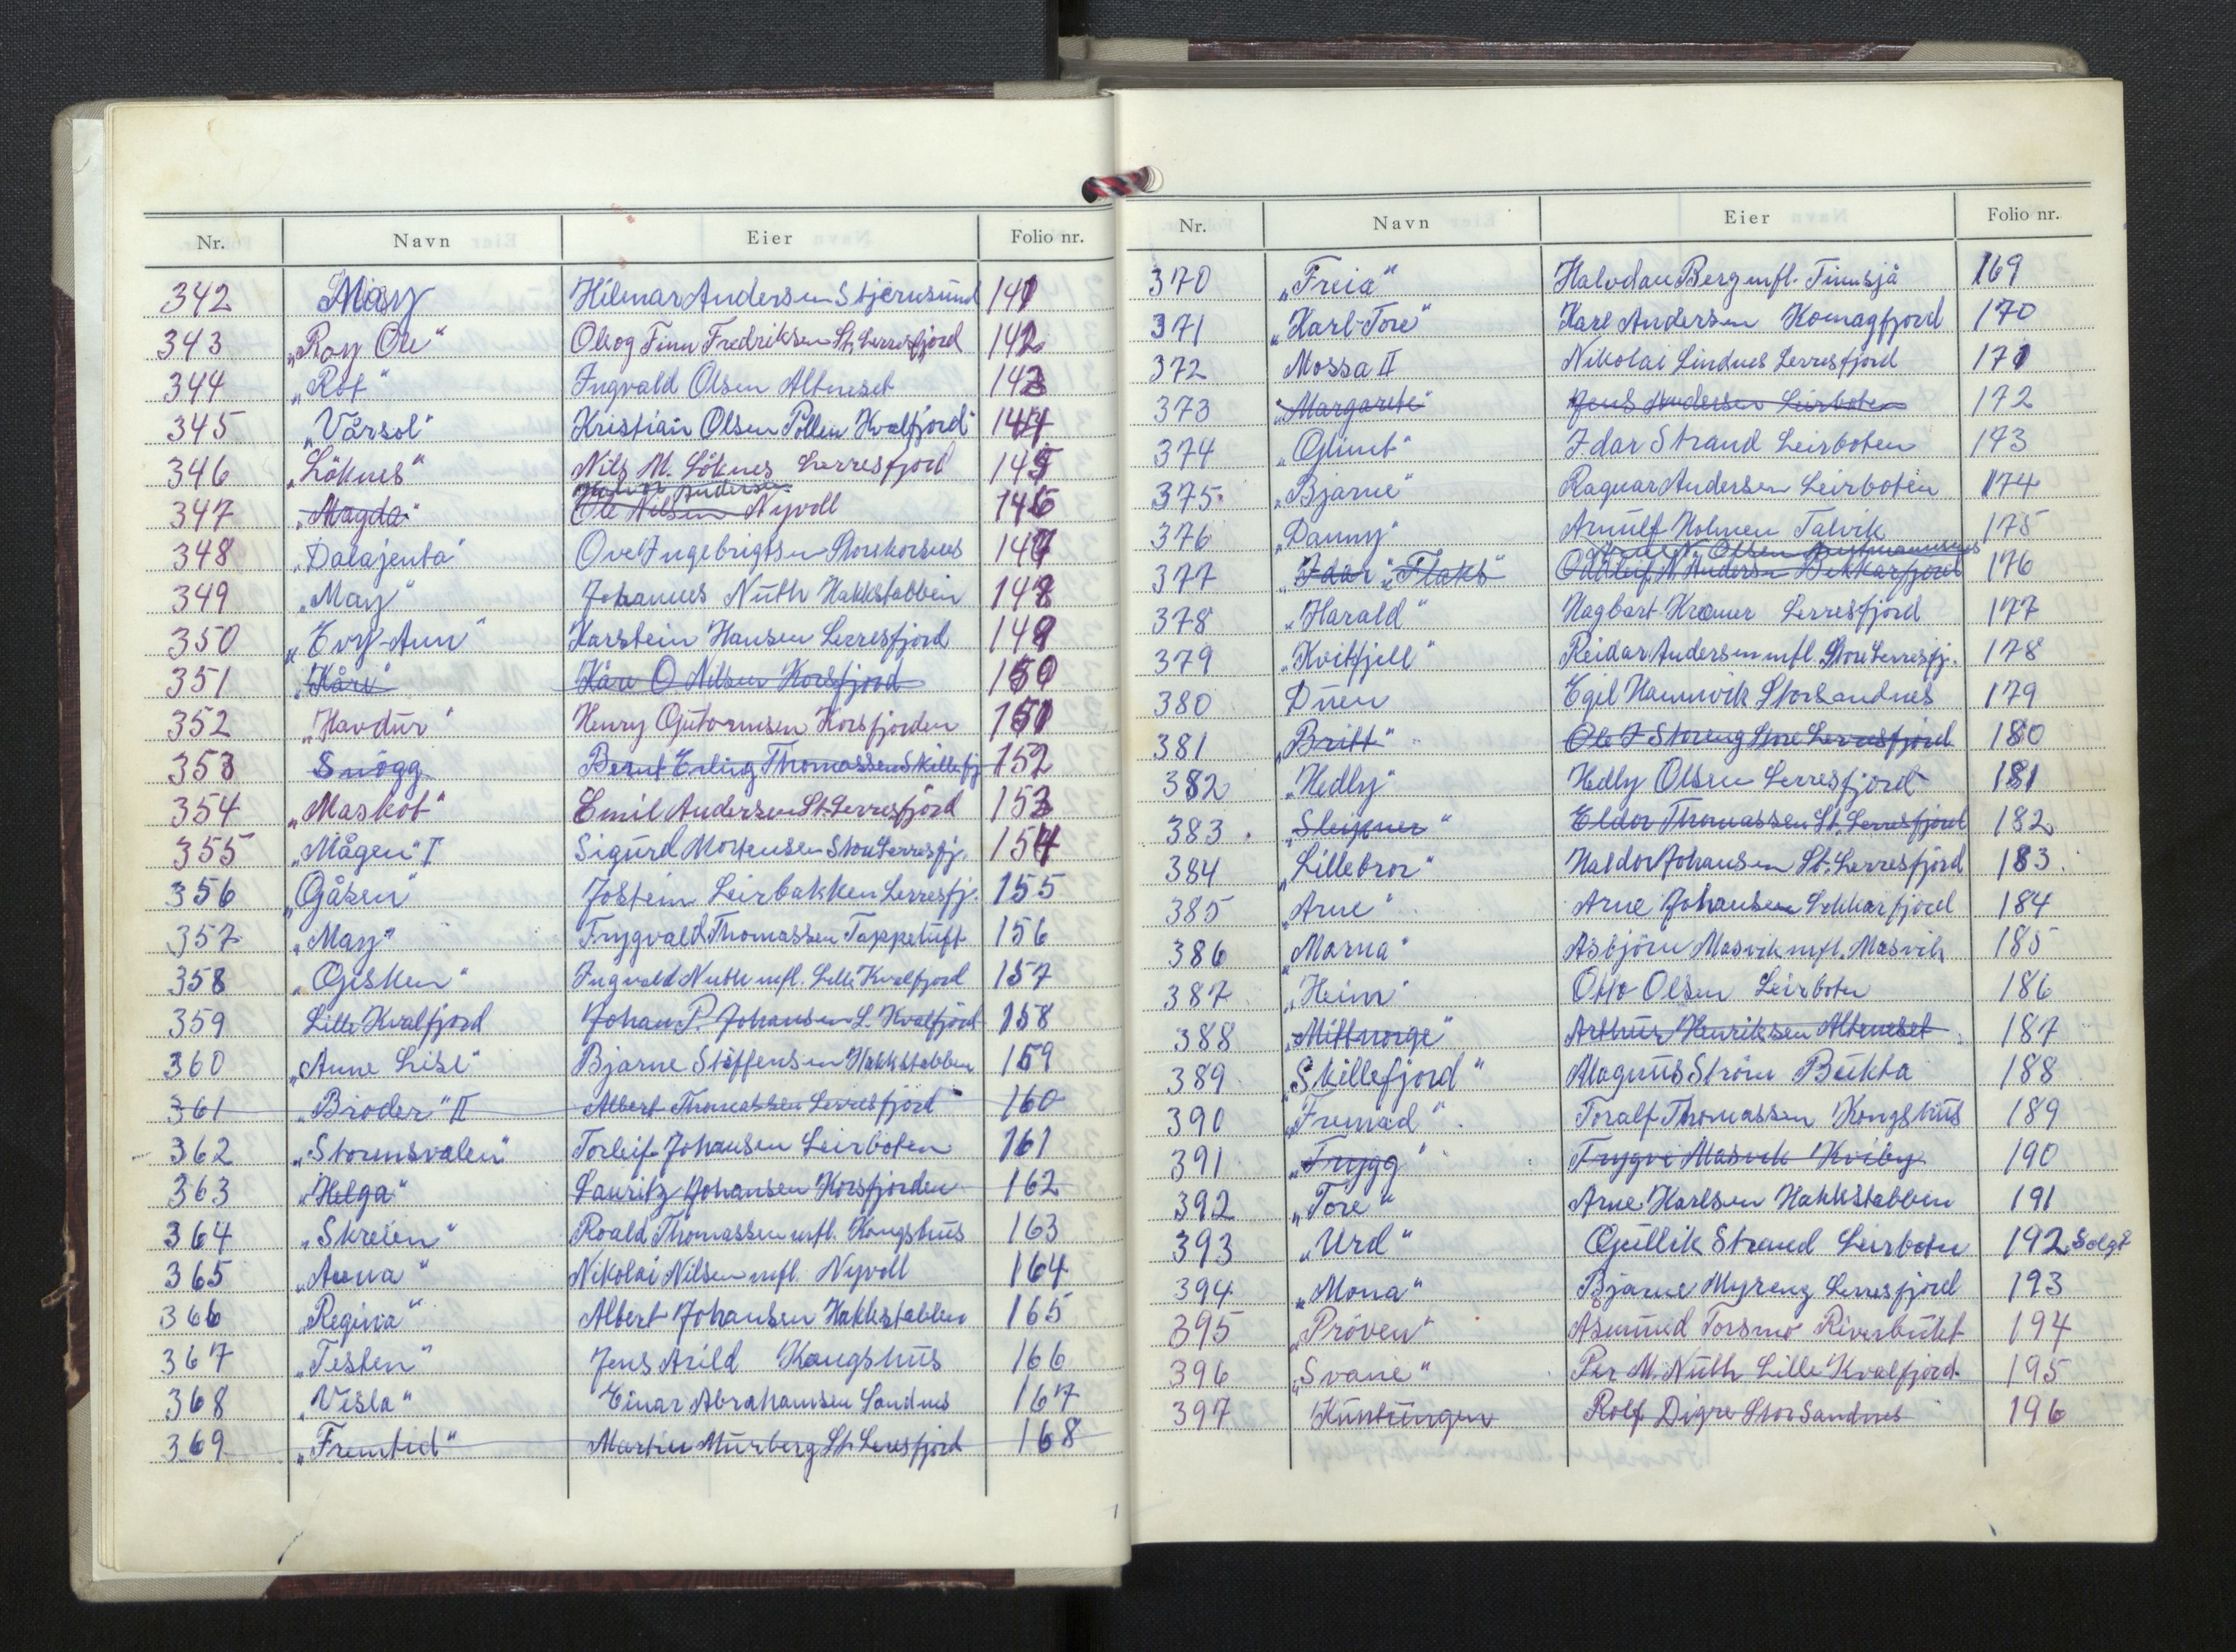 Nr. Navn Eier Folio nr.
342 May Hilmar Andersen Stjernsund 141
343 „Roy Ole“ Ole og Finn Fredriksen St. Lerresfjord 142
344 „Rot“ Ingvald Olsen Altneset 143
345 „Vårsol“ Kristian Olsen Pollen Kvalfjord 144
346 „Löknes“ Nils M. Löknes Lerresfjord 145
Andersen
347 „Magda“ Ole Nilsen Nyvoll 146
348 „Dalajenta“ Ove Ingebrigtsen Storekorsnes 147
349 „May“ Johannes Nuth Hakkstabben 148
350 „Evy-Ann“ Karstein Hansen Lerresfjord 149
351 „Kåre“ Kåre O Nilsen Korsfjord 150
352 „Havdur“ Henry Guttormsen Korsfjorden 151
353 Snögg Bernt Erling Thomassen Skillefj 152
354 „Maskot“ Emil Andersen St. Lerresfjord 153
355 „Mågen“ I Sigurd Mortensen Store Lerresfj. 154
356 „Gåsen“ Jostein Leirbakken Lerresfj. 155
357 „May“ Trygvald Thomassen Tappeluft 156
358 „Gisken“ Ingvald Nuth mfl. Lille Kvalfjord 157
359 Lille Kvalfjord Johan P. Johansen L. Kvalfjord 158
360 „Anne Lise“ Bjarne Steffensen Hakkstabben 159
361 „Broder“ II Albert Thomassen Lerresfjord 160
362 „Stormsvalen“ Torleif Johansen Leirboten 161
363 „Helga“ Lauritz Johansen Korsfjorden 162
364 „Skreien“ Roald Thomassen mfl. Kongshus 163
365 „Anna“ Nikolai Nilsen mfl. Nyvoll 164
366 „Regina“ Albert Johansen Hakkstabben 165
367 „Testen“ Jens Arild Kongshus 166
368 „Visla“ Einar Abrahamsen Sandnes 167
369 „Fremtid“ Martin Murberg St. Lerresfjord 168
Nr. Navn Eier Folio nr.
370 „Freia“ Halvdan Berg mfl. Simsjå 169
371 „Karl-Tore“ Karl Andersen Komagfjord 170
372 Mossa II Nikolai Lindnes Lerresfjord 171
373 „Margarete“ Jens Andersen Leirboten 172
374 „Glimt“ Idar Strand Leirboten 173
375. „Bjarne“ Ragnar Andersen Leirboten 174
376 „Danny“ Arnulf Holmen Talvik 175
N. Olsen
377 „Idar“ „Flaks“ Oddleif N Andersen Bekkarfjord 176
378 „Harald“ Hagbart Kramer Lerresfjord 177
379 „Kvitfjell“ Reidar Andersen mfl. Store Lerresfj. 178
380 Duen Egil Hamnvik Storsandnes 179
381 „Britt“ Ole J Storeng Store Lerresfjord 180
382 „Hedly“ Hedly Olsen Lerresfjord 181
383. „Sleipner“ Eldor Thomassen St. Lerresfjord 182
384 „Lillebror“ Haldor Johansen St. Lerresfjord 183.
385 „Arne“ Arne Johansen Lokkarfjord 184
386 „Marna“ Asbjörn Masvik mfl. Masvik 185
387 „Heim“ Otto Olsen Leirboten 186
388 „Mittnorge“ Arthur Henriksen Altneset 187
389 „Skillefjord“ Magnus Ström Bukta 188
390 „Fremad“ Toralf Thomassen Kongshus 189
391 „Trygg“ Trygve Masvik Kviby 190
392 „Tore“ Arne Karlsen Hakkstabben 191
393 „Urd“ Gullik Strand Leirboten 192 Solgt
394 „Mona“ Bjarne Myreng Lerresfjord 193
395 „Pröven“ Asmund Torsmo Riverbukt 194
396 „Svane“ Per M. Nuth Lille Kvalfjord. 195
397 Kunstungen Rolf Digre Storsandnes 196